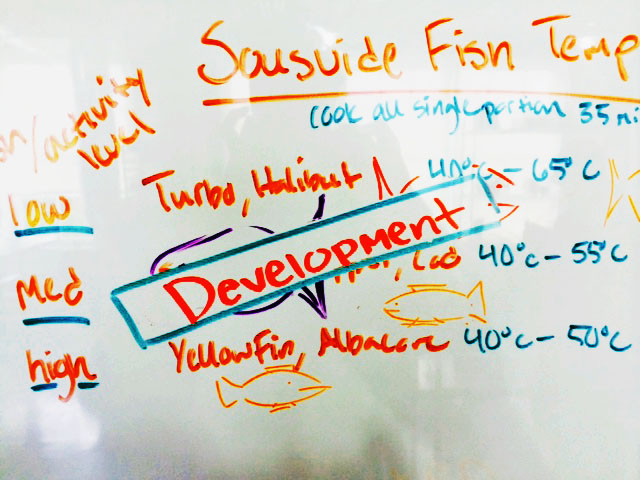 Sousvide Fish Temp
cook all single portion 35 mi
/activity
level
low Turbo, Halibut 40°c - 65°c
Development
Med Cod 40°c - 55°c
high Yellowfin, Albacore 40°c - 50°c